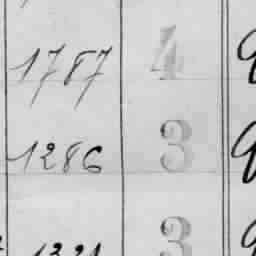 1787 4
1286 3
1321 3